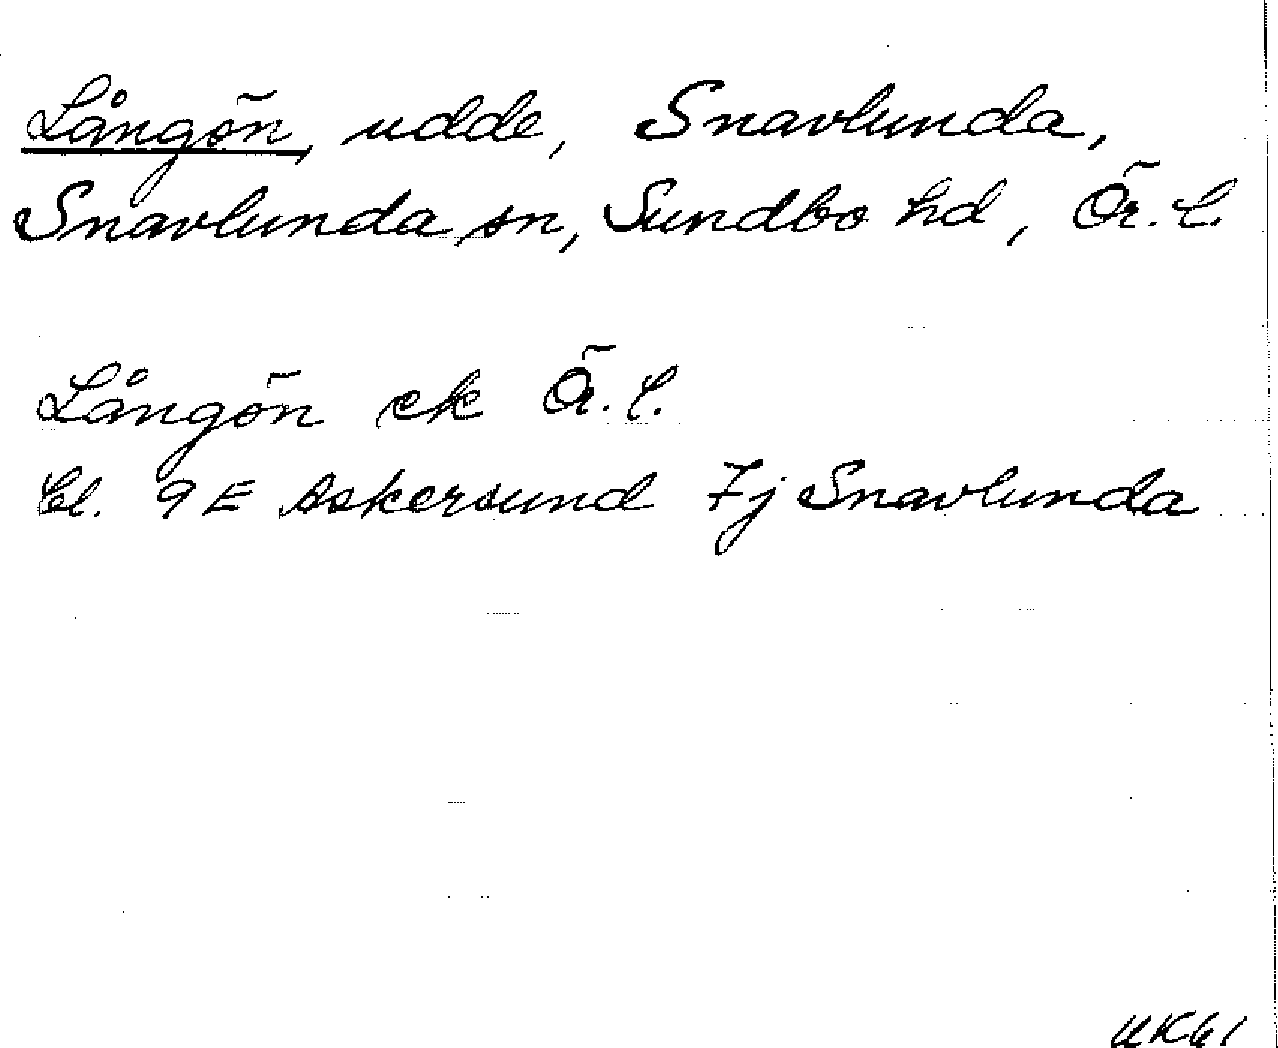 Långön, udde, Snavlunda,
Snavlunda sn, Sundbo hd, Ör. l.
Långön ek Ö. l.
bl. 9E Askersund 7j Snavlunda
UK61